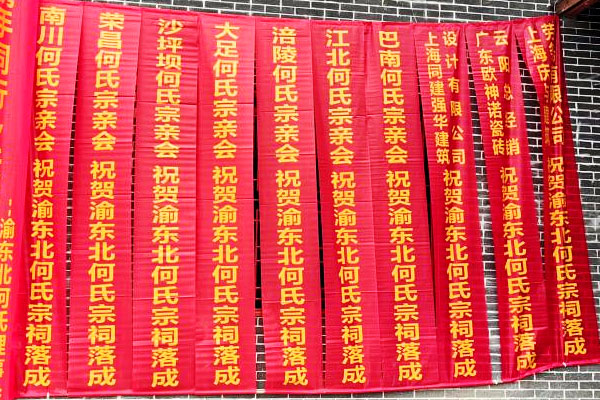 南川何氏宗亲会 祝贺渝东北何氏宗祠落成
荣昌何氏宗亲会 祝贺渝东北何氏宗祠落成
沙坪坝何氏宗亲会 祝贺渝东北何氏宗祠落成
大足何氏宗亲会 祝贺渝东北何氏宗祠落成
涪陵何氏宗亲会 祝贺渝东北何氏宗祠落成
江北何氏宗亲会 祝贺渝东北何氏宗祠落成
巴南何氏宗亲会 祝贺渝东北何氏宗祠落成
上海同建强华建筑
设计有限公司
祝贺渝东北何氏宗祠落成
广东欧神诺瓷砖
云阳总经销
祝贺渝东北何氏宗祠落成
上海
务有限公司
祝贺渝东北何氏宗祠落成
渝东北何氏